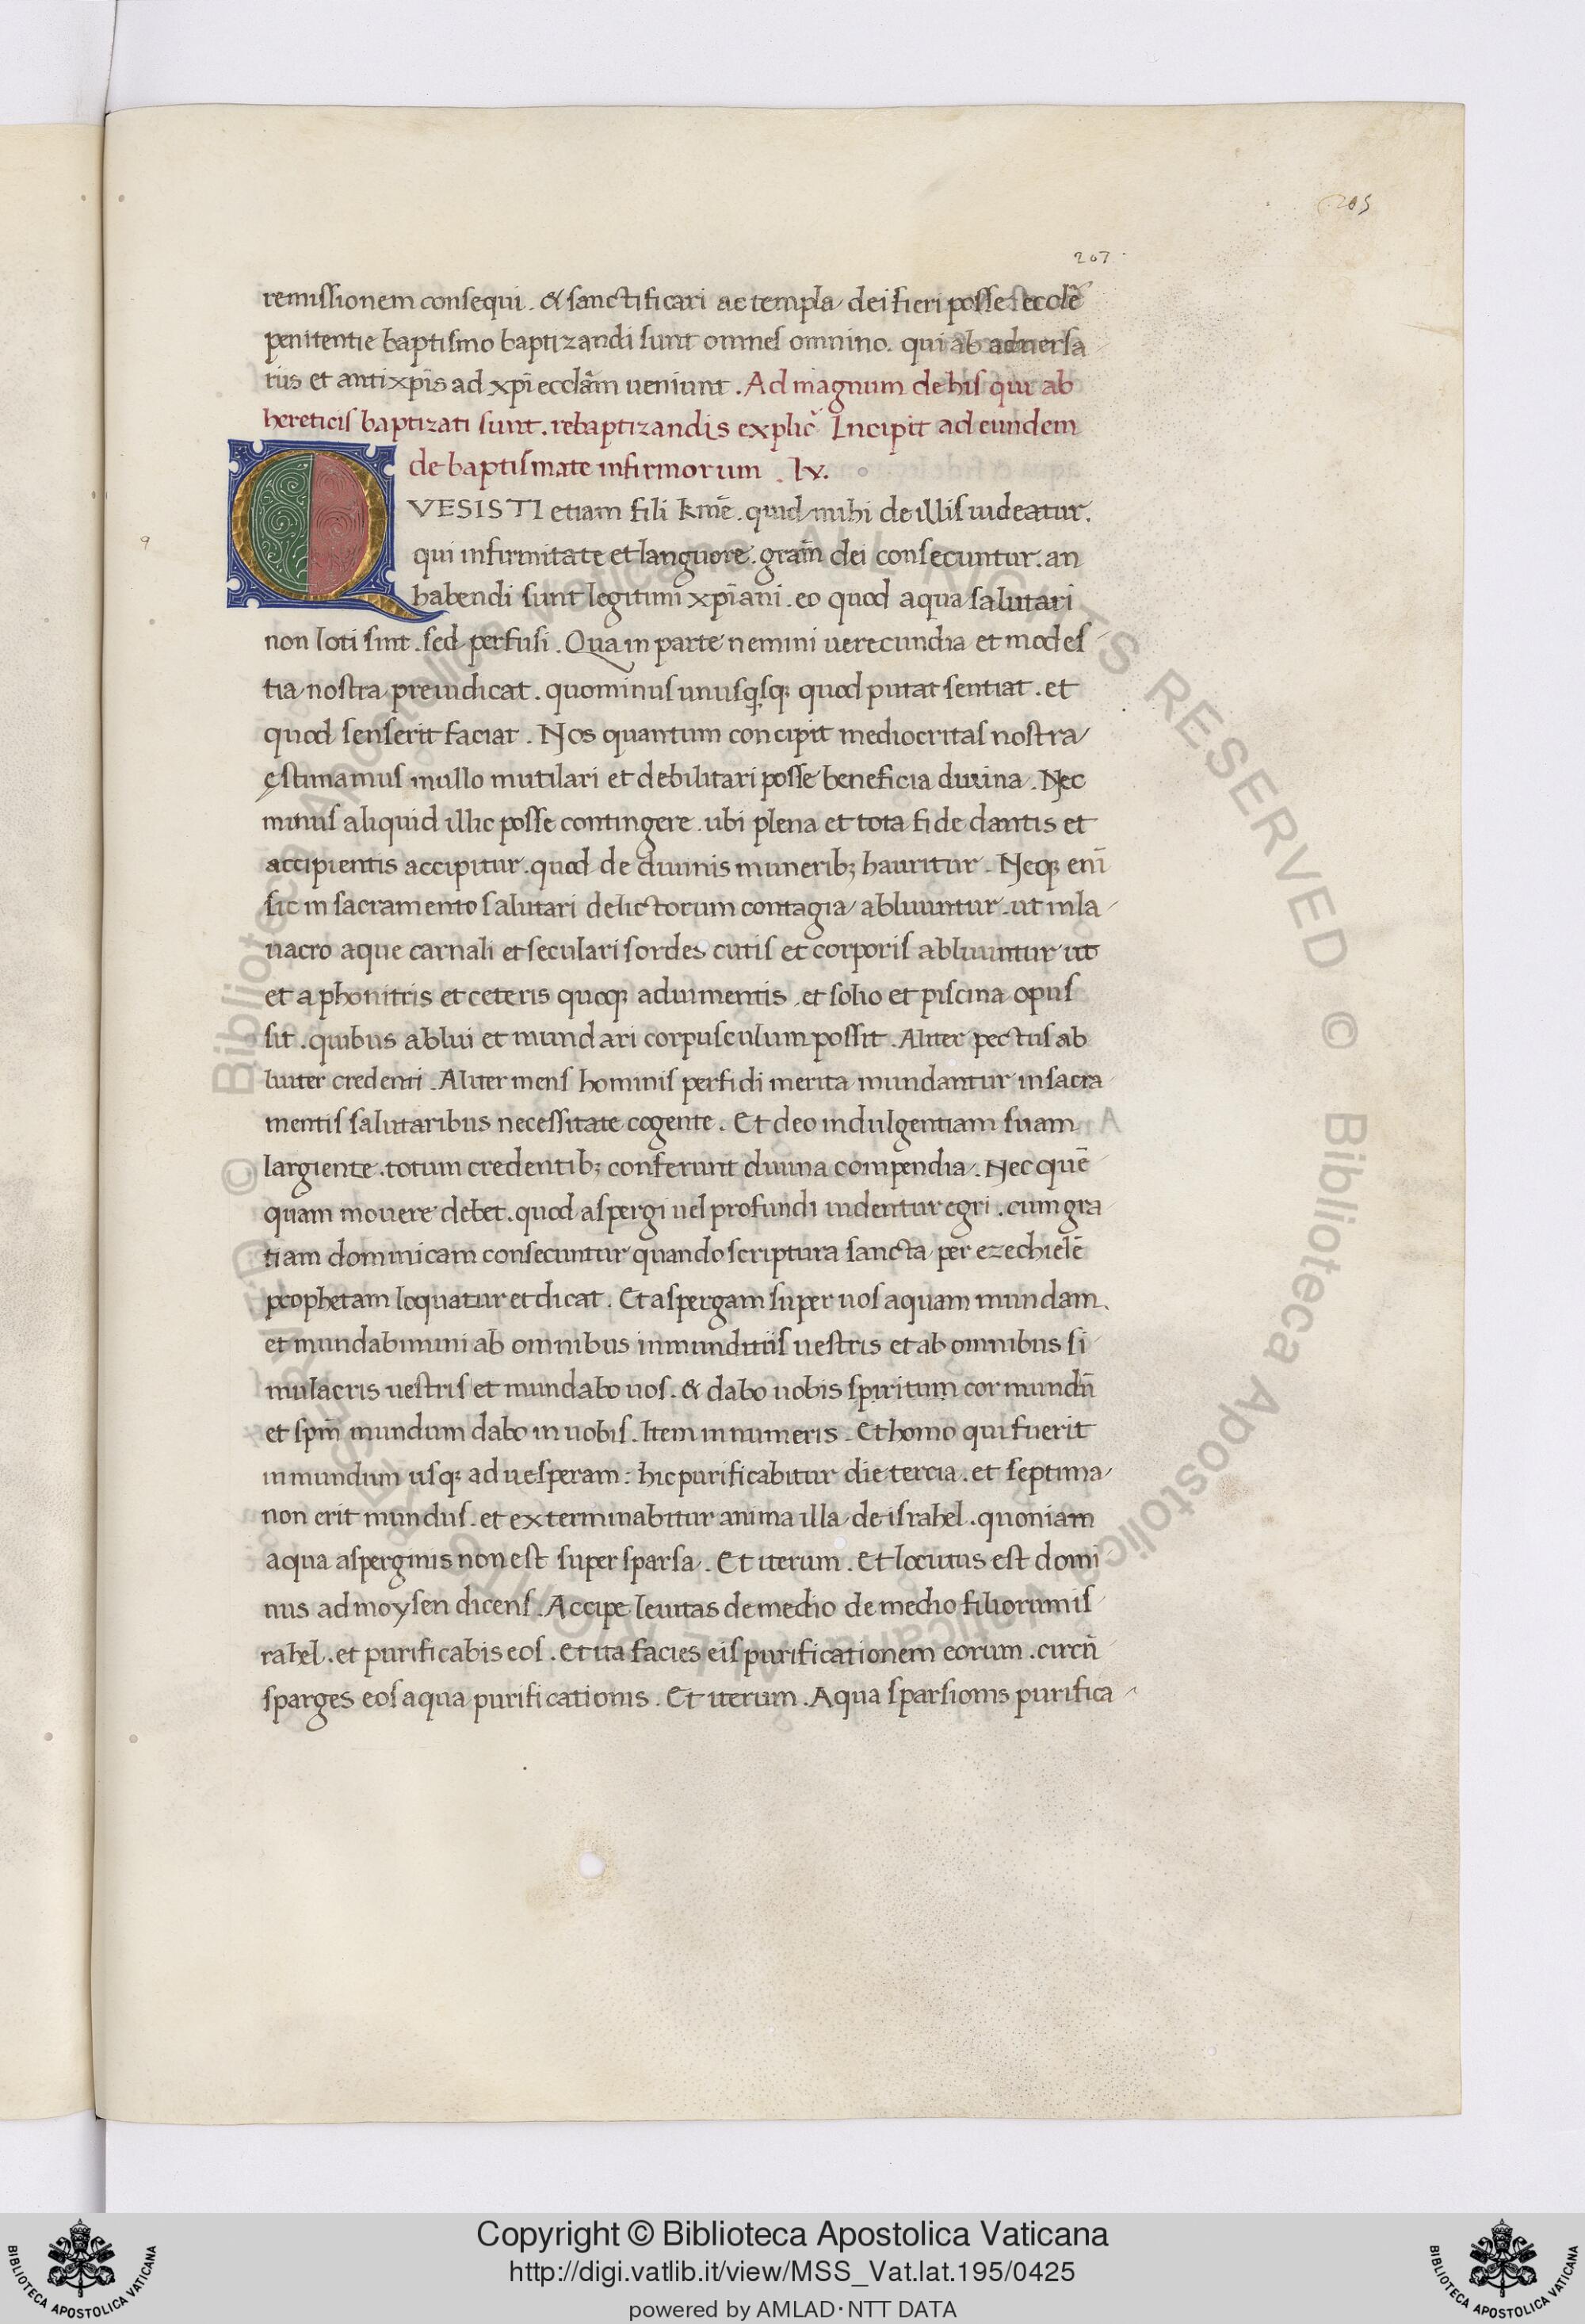 205
207
remissionem consequi . & sanctificari ac templa dei fieri posse . ecclē
penitentie baptismo baptizandi sunt omnes omnino . qui ab aduersa
riis et antixp̄is ad xp̄i eccl̄am ueniunt . Ad magnum de his qui ab
hereticis baptizati sunt . rebaptizandis explic̄ Incipit ad eundem
de baptismate infirmorum . lv.
QVESISTI etiam fili kme̅ . quid mihi de illis uideatur .
9
qui infirmitate et languore . gram̄ dei consecuntur . an
habendi sunt legitimi xp̄iani . eo quod aqua salutari
non loti sint . sed perfusi . Qua in parte nemini uerecundia et modes
tia nostra preiudicat . quominus unusq̱sq; quod putat sentiat . et
quod senserit faciat . Nos quantum concipit mediocritas nostra
ęstimamus innullo mutilari et debilitari posse beneficia diuina . Nec
minus aliquid illic posse contingere . ubi plena et tota fide dantis et
accipientis accipitur . quod de diuinis munerib; hauritur . Neq; eni̅
sic in sacramento salutari delictorum contagia abluuntur . ut in la
uacro aque carnali et seculari sordes cutis et corporis abluuntur ut
et aphonitris et ceteris quoq; adiumentis . et solio et piscina opus
sit . quibus ablui et mundari corpusculum possit . Aliter pectus ab
luiter credenti . Aliter mens hominis perfidi merita mundantur in sacra
mentis salutaribus necessitate cogente . Et deo indulgentiam suam
largiente . totum credentib; conferunt diuina compendia . Nec que̅
quam mouere debet . quod aspergi uel profundi uidentur egri . cum gra
tiam dominicam consecuntur quando scriptura sancta per ezechiele̅
prophetam loquatur et dicat . Et aspergam super uos aquam mundam .
et mundabimini ab omnibus inmunditiis uestris et ab omnibus si
mulacris uestris et mundabo uos . & dabo uobis spiritum cor mundu̅
et sp̄m mundum dabo in uobis . Item in numeris . Et homo qui fuerit
inmundum usq; ad uesperam : hic purificabitur die tercia . et septima
non erit mundus . et exterminabitur anima illa de israhel . quoniam
aqua asperginis non est super sparsa . Et iterum . Et locutus est domi
nus ad moysen dicens . Accipe leuitas de medio de medio filiorum is
rahel . et purificabis eos . Et ita facies eis purificationem eorum . circu̅
sparges eos aqua purificationis . Et iterum . Aqua sparsionis purifica
© Biblioteca Apostolica Vaticana ALL RIGHTS RESERVED © Biblioteca Apostolica Vaticana ALL RIGHTS RESERVED
Copyright © Biblioteca Apostolica Vaticana
http://digi.vatlib.it/view/MSS_Vat.lat.195/0425
powered by AMLAD · NTT DATA
BIBLIOTECA APOSTOLICA VATICANA
BIBLIOTECA APOSTOLICA VATICANA